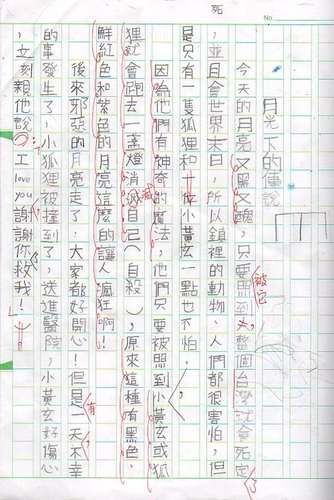 月光下的傳說
今天的月亮又黑又醜，只要照到，整個台灣就會死定
，並且會世界末日，所以鎮裡的動物、人們都很害怕，但
是只有一隻狐狸和小黃玄一點也不怕。
因為他們有神奇的魔法，他們只要被照到小黃玄或狐
狸就會跑去一盞燈消滅自己（自殺），原來這種有黑色、
鮮紅色和紫色的月亮這麼的讓人瘋狂啊！
後來邪惡的月亮走了，大家都好開心！但是一天不幸
的事發生了，小狐狸被撞到了，送進醫院，小黃玄好傷心
，立刻親他說：I love you謝謝你救我！
被它
有
No.